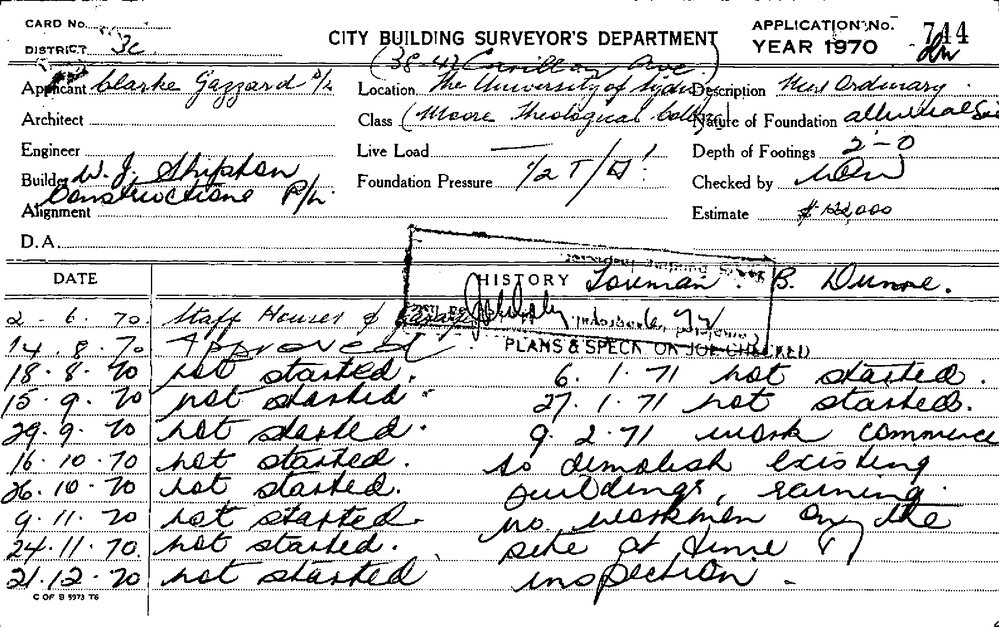 CARD No.
DISTRICT 3c
CITY BUILDING SURVEYOR'S DEPARTMENT
APPLICATION No. 744
YEAR 1970
(38-42 Carillon Ave.)
Applicant Clarke Gazzard P/L
Location The University of Sydney
Description New Ordinary
Architect
Class (Moore Theological College)
Nature of Foundation alluvial Soil
Engineer
Live Load —
Depth of Footings 2'-0
Builder W. J. Shipton
Constructions P/L.
Foundation Pressure 1/2 T/□'
Checked by
Alignment
Estimate $ 122,000
D.A.
DATE HISTORY B. Dunne.
2-6.70. Staff Houses &
14.8.70 Approved
PLANS & SPECN. ON JOB CHECKED
18.8.70 not started. 6.1.71 not started.
15.9.70 not started. 27.1.71 not started.
29.9.70 not started. 9.2.71 work commence
16.10.70 not started. to demolish existing
26.10.70 not started. buildings, raining.
9.11.70 not started. no workmen on the
24.11.70. not started. site at time of
21.12.70 not started inspection -
C OF S 5973 T6